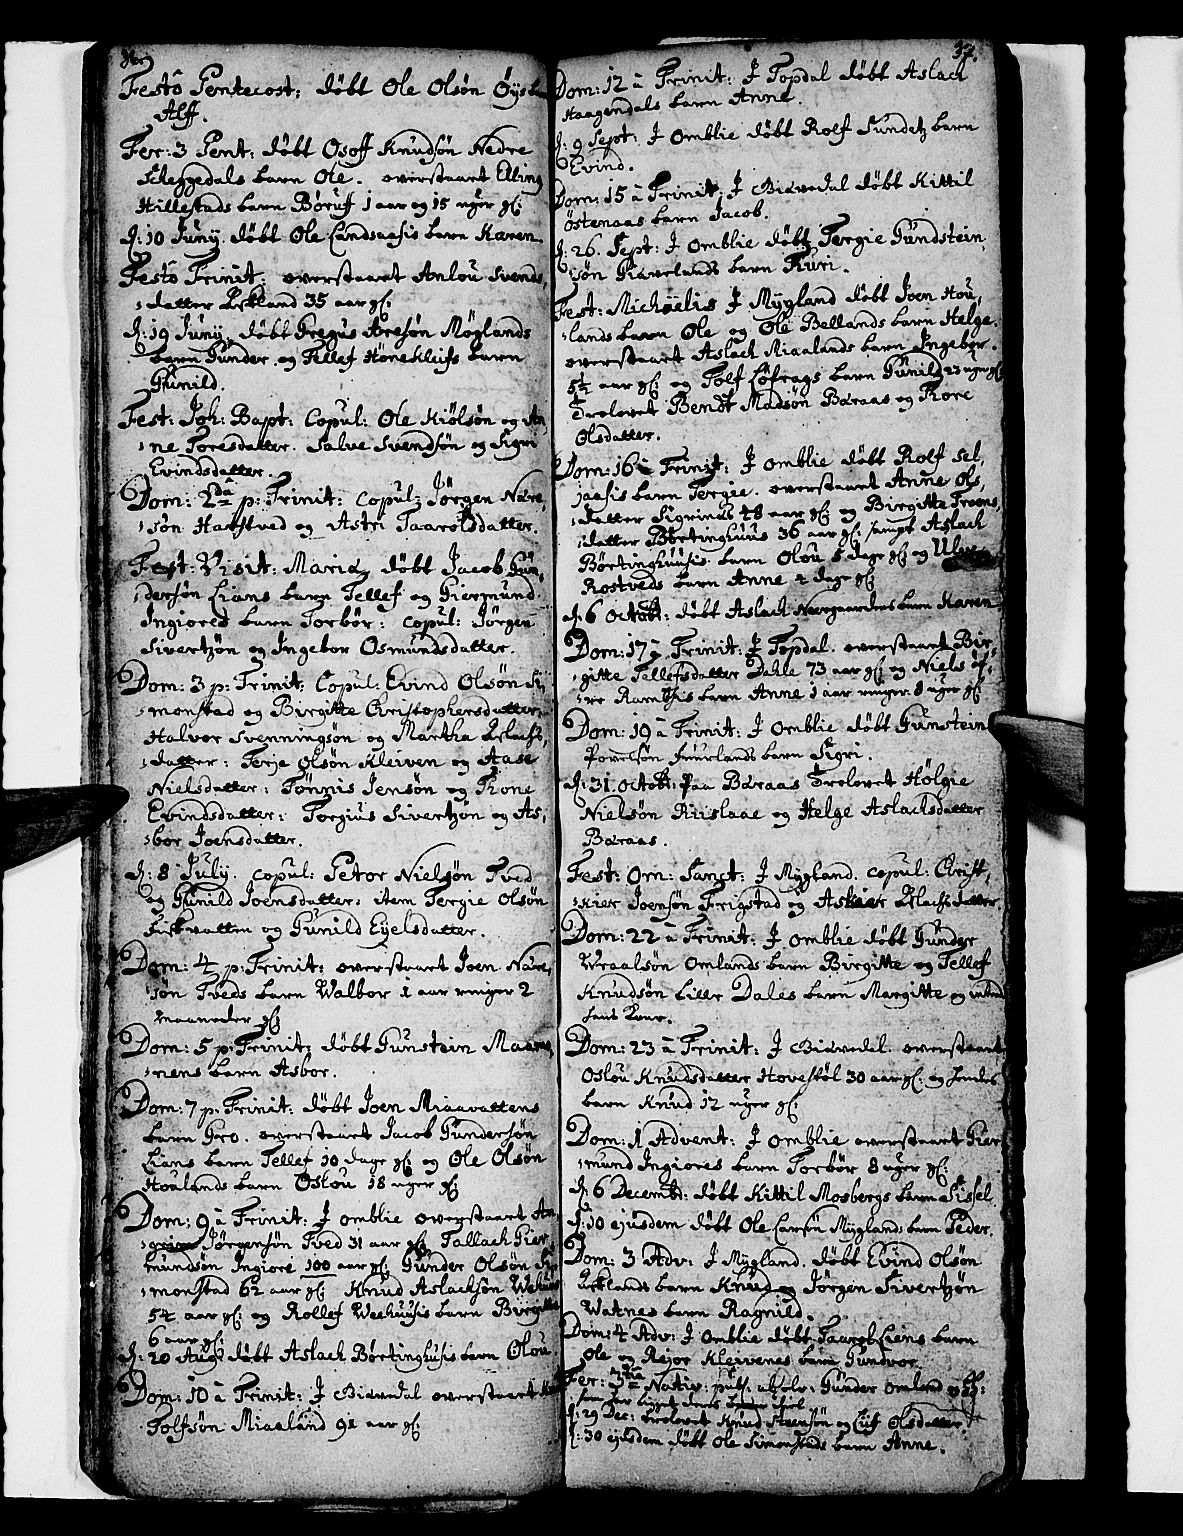 Festô Pentecost: döbt Ole Olsøn Øysta
Alff.
Fer: 3 Pent: döbt Osoff Knudsøn Nedre
Skeggedals barn Ole. overstaaet Elling
Hillestads barn Børuf 1 aar og 15 uger gl:
d: 10 Juny. döbt Ole Landsaasis barn Karen.
Festô Trinit: overstaaet Anlou Svends,
datter Eskland 35 aar gl:
d: 19 Juny, döbt Gregus Aresøn Møglands
barn Gunder. og Tellef Hønekleifs barn
Gunild.
Fest: Joh: Bapt: Copul: Ole Kiølsøn og An,
ne Toresdatter. Salve Svendsøn og Sigri
Evindsdatter.
Dom: 2da p: Trinit: Copul: Jørgen Nære
søn Harstved og Astri Taaroldsdatter.
Fest: Visit: Mariæ, döbt Jacob Gun,
dersøn Lians barn Tellef og Giermund
Ingiored barn Torbør: Copul: Jørgen
Sivertzøn og Ingebor Osmundsdatter.
Dom: 3 p: Trinit: Copul: Evind Olsøn Si,
monstad og Birgitte Christophersdatter,
Halvor Svenningsøn og Martha Eslachs,
datter: Terje Olsøn Kleiven og Aase
Nielsdatter: Tønnis Jensøn og Tone
Evindsdatter: Torgius Sivertzøn og As,
bor Joensdatter.
d: 8 July. Copul: Petor Nielsøn Tved
og Gunild Joensdatter. item Tergie Olsøn
Fiskvatten og Gunild Eyelsdatter.
Dom: 4 p: Trinit: overstaaet Joen Nære,
søn Tveds barn Walbor 1 aar ringer 2
maaneder gl:
Dom: 5 p: Trinit: döbt Gunstein Maa
nens barn Asbor.
Dom: 7 p: Trinit: döbt Joen Miaavattens
barn Gro. overstaaet Jacob Gundersøn
Lians barn Tellef 10 dage gl: og Ole Olsøn
Houlands barn Oslou 18 uger gl:
Dom: 9 à Trinit: J Omblie overstaaet An,
Jørgensøn Tved 31 aar gl: Tallach Gier,
mundsøn Ingiore 100 aar gl: Gunder Olsøn Si
monstad 62 aar gl: Knud Aslacksøn We
54 aar gl: og Rollef Weehuusis barn Birgitte
6 aar gl:
d: 20 Aug: döbt Aslach Børtinghusis barn Olou
Dom: 10 à Trinit: J Giøvedal overstaaet
Tolfsøn Miaaland 91 aar gl:
37.
Dom: 12 à Trinit: J Topdal döbt Aslach
Haagendals barn Anne.
d: 9 Sept: J Omblie döbt Rolf Sundetz barn
Evind.
Dom: 15 à Trinit: J Giøvedal döbt Kittil
Østenaas barn Jacob.
d: 26. Sept: J Omblie döbt Tergie Gundstein,
søn Giøvelands barn Kuri.
Fest: Michaelis J Mygland döbt Joen Hou,
lands barn Ole og Ole Bellands barn Helge.
overstaaet Aslach Miaalands barn Ingebor.
5½ aar gl: og Tolf Løfrags barn Gunild 23 uger gl:
Trolovet Bendt Madsøn Baraas og Tore
Olsdatter.
Dom: 16 à Trinit: J Omblie döbt Rolf Sel,
jaasis barn Tergie. overstaaet Anne Ols,
datter Sigrinas 48 aar gl: og Birgitte Trons,
datter Børtinghuus 36 aar gl: sampt Aslach
Børtinghuusis barn Olou 5 dage gl: og
Rostveds barn Anne 2 dage gl:
d: 6 Octobr: döbt Aslach Nærgaardens barn Karen
Dom: 17 à Trinit: J Topdal. overstaaet Bir,
gitte Tellefsdatter Dahle 73 aar gl: og Niels øf,
re Ramthsis barn Anne 1 aar ringer 8 uger gl:
Dom: 19 à Trinit: J Omblie döbt Gunstein
Povelsøn Fuurlands barn Sigri.
d: 31 Octobr: Paa Baraas Trolovet Hølgie
Nielsøn Riislaae og Helge Aslachsdatter
Baraas.
Fest: Om: Sanct: J Mygland. Copul: Christ,
Joensøn Frigstad og Eslachsdatter.
Dom: 22 à Trinit: J Omblie döbt Gunder
Wraalsøn Omlands barn Birgitte og Tellef
Knudsøn Lille Dales barn Margitte og
hans Kone.
Dom: 23 à Trinit: J Giøvedal overstaaet
Oslou Knudsdatter Hovestøl 30 aar gl: og hendes
barn Knud 12 uger gl:
Dom: 1 Advent: J Omblie overstaaet Gier
mund Ingiores barn Torbør 8 uger gl:
d: 6 Decembr: döbt Kittil Mosbergs barn Sissel.
d: 10 ejusdem döbt Ole Larsøn Myglands barn Peder.
Dom: 3 Adv: J Mygland. döbt Evind Olsøn
Esklands barn Knud og Jørgen Sivertzøn
Watnes barn Ragnild.
Dom: 4 Adv: J Omblie döbt Taarol Lians barn
Ole og Rejor Kleivenes barn Gundvor.
Fer: 3tia Nativ: publ: absolv: Gunder Omland og
d: 29 Dec: Trolovet Knud Steensøn og Luf Olsdatter.
d: 30 ejusdem döbt Ole Simonstads barn Anne.